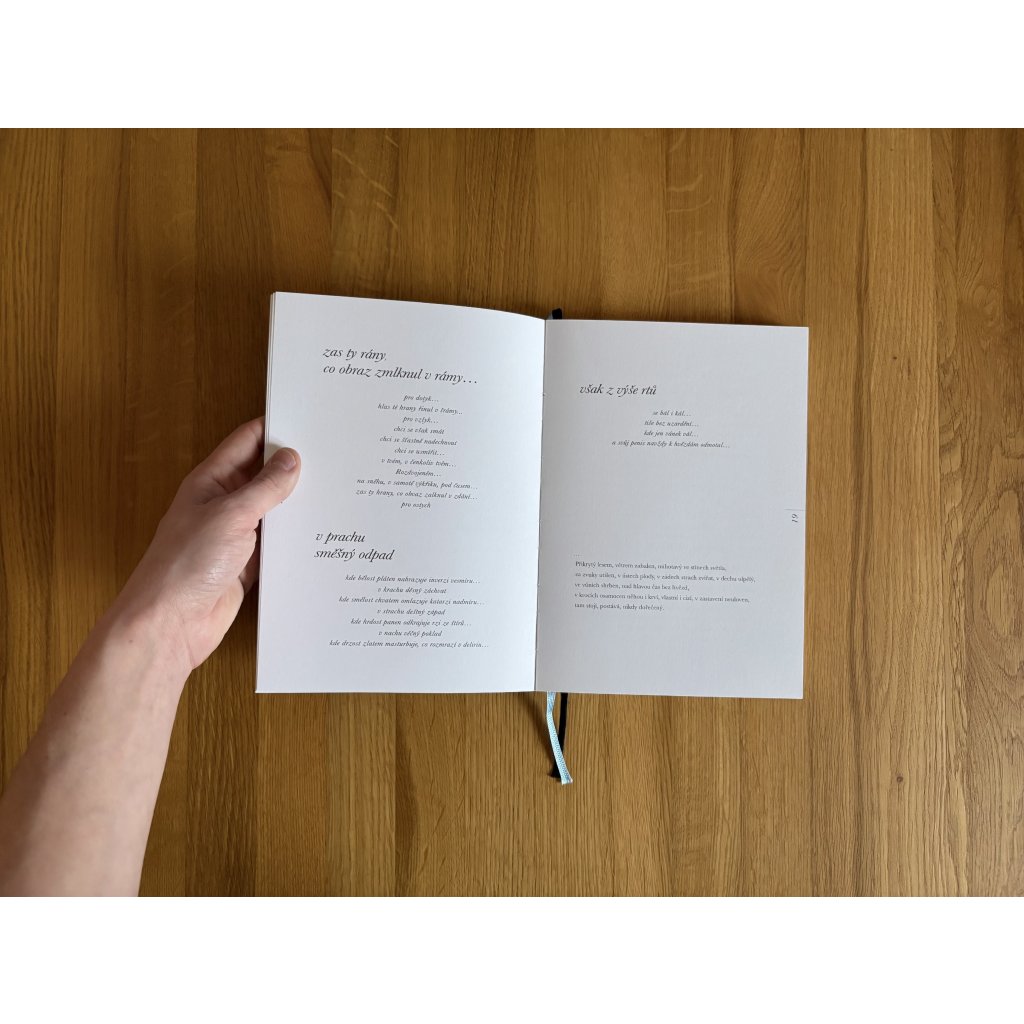 zas ty rány,
co obraz zmlknul v rámy…
pro dotyk…
hlas té hrany řinul v trámy...
pro vzlyk…
chci se však smát
chci se šťastně nadechnout
chci se usmířit…
v tvém, v čemkoliv tvém…
Rozdvojeném…
na sněhu, v samotě výkřiku, pod časem…
zas ty hrany, co obraz zalknul v zdání…
pro ostych
v prachu
směšný odpad
kde bělost pláten nahrazuje inverzi vesmíru…
v krachu děsný záchvat
kde smělost chvatem omlazuje katarzi nadmíru…
v strachu deštný západ
kde hrdost panen odkrajuje rzi ze štírů…
v nachu věčný poklad
kde drzost zlatem masturbuje, co rozmrazí v deliriu…
však z výše rtů
se bál i kál…
tiše bez uzardění…
kde jen vánek vál…
a svůj penis navždy k hvězdám odmotal…
19
…
Přikrytý lesem, větrem zabalen, mihotavý ve stínech světla,
za zvuky utišen, v ústech pludy, v zádech strach zvířat, v dechu ulpělý,
ve vůních shrben, nad hlavou čas bez hvězd,
v krocích osamocen něhou i krví, vlastní i cizí, v zastavení neuloven,
tam stojí, postává, nikdy dořečený.